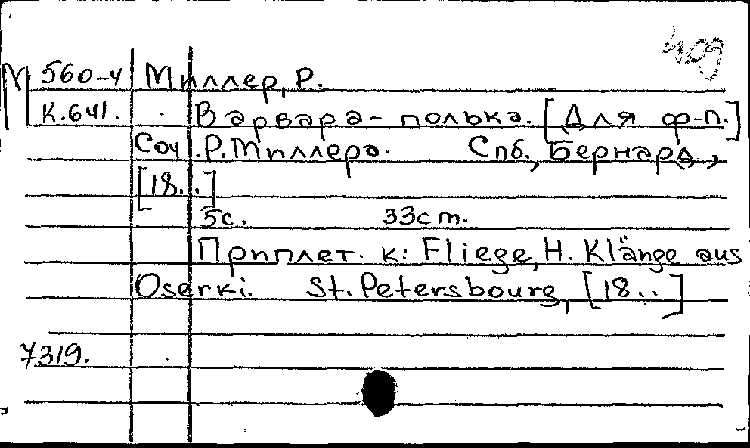 409
М 560-4 Миллер, Р.
К.641. Варвара- полька. [Для ф-п.]
Соч. Р.Миллера. Спб., Бернард,
[18..]
5с. 33cm.
Приплет. к: Fliege, H. Klänge aus
Oserki. St. Petersbourg, [18..]
7319.